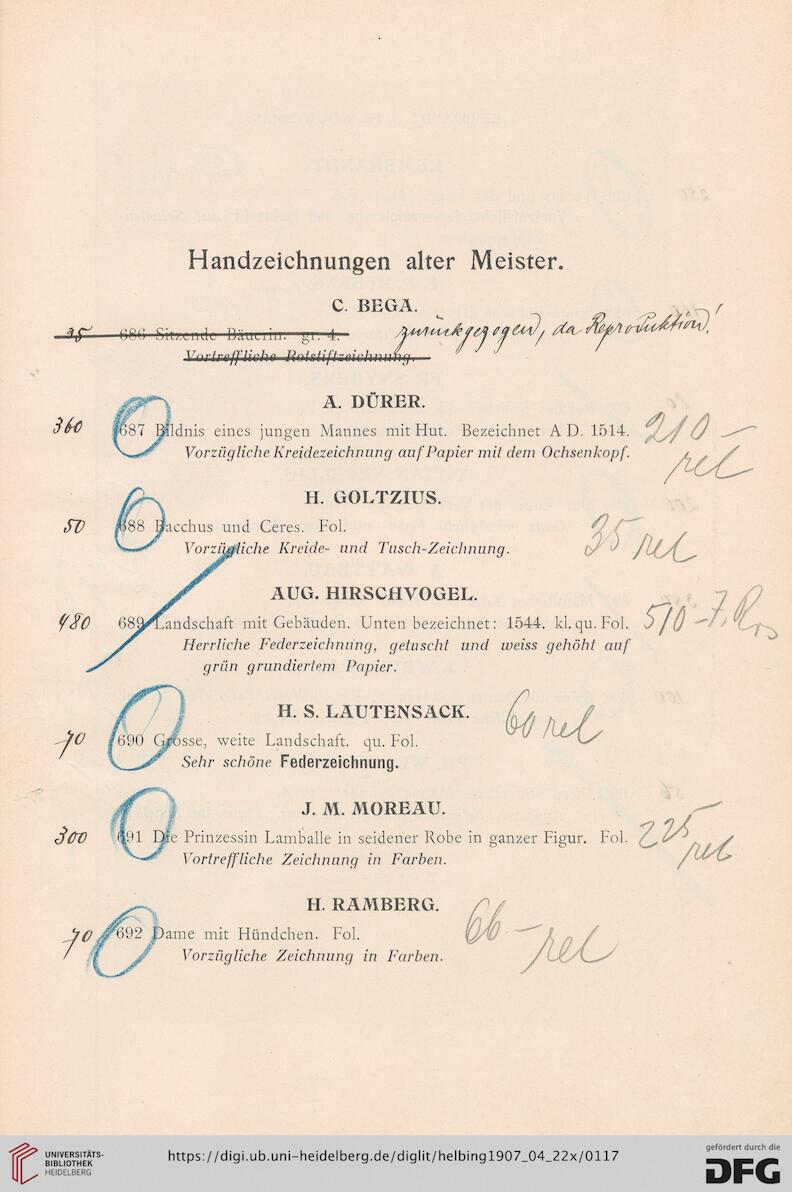 Handzeichnungen alter Meister.
C. BEGA.
35 686 Sitzende Bäuerin. gr. 4. zurückgezogen, da Reproduktion!
Vortreffliche Rotstiftzeichnung.
A. DÜRER.
360 687 Bildnis eines jungen Mannes mit Hut. Bezeichnet A D. 1514. 210 —
Vorzügliche Kreidezeichnung auf Papier mit dem Ochsenkopf. rel
H. GOLTZIUS.
50 688 Bacchus und Ceres. Fol. 35 rel
Vorzügliche Kreide- und Tusch-Zeichnung.
AUG. HIRSCHVOGEL.
480 689 Landschaft mit Gebäuden. Unten bezeichnet: 1544. kl. qu. Fol. 510 —
Herrliche Federzeichnung, getuscht und weiss gehöht auf
grün grundiertem Papier.
H. S. LAUTENSACK. 60 rel
70 690 Grosse, weite Landschaft. qu. Fol.
Sehr schöne Federzeichnung.
J. M. MOREAU.
300 691 Die Prinzessin Lamballe in seidener Robe in ganzer Figur. Fol. 225
Vortreffliche Zeichnung in Farben. rel
H. RAMBERG.
70 692 Dame mit Hündchen. Fol. 66 —
Vorzügliche Zeichnung in Farben. rel
UNIVERSITÄTS-
BIBLIOTHEK
HEIDELBERG
https://digi.ub.uni-heidelberg.de/diglit/helbing1907_04_22x/0117
gefördert durch die
DFG